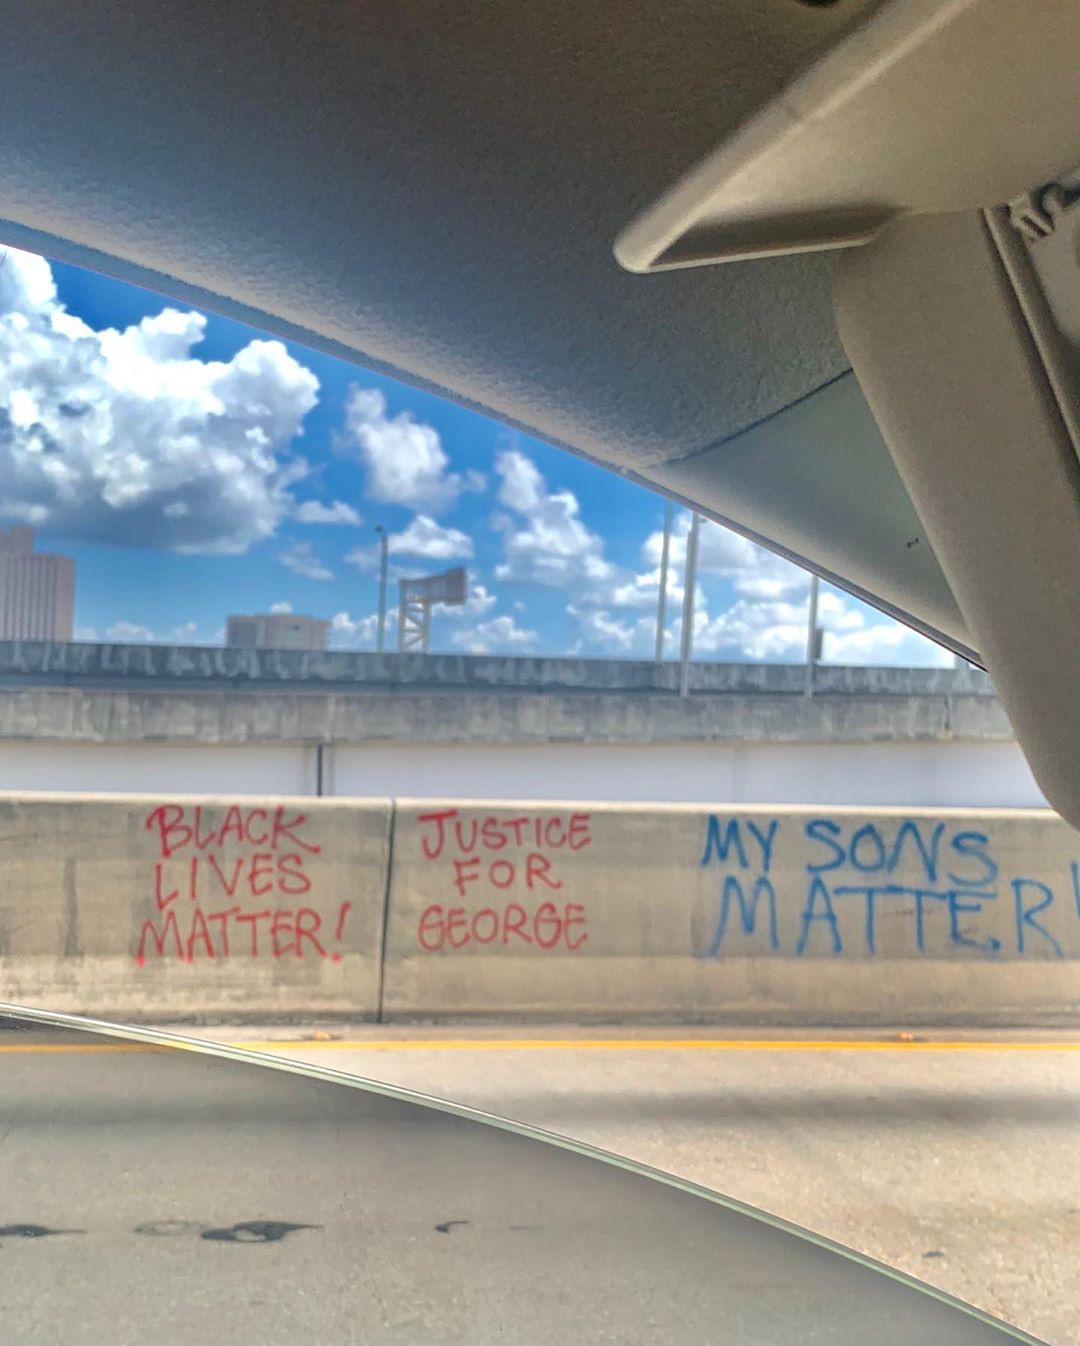 BLACK
LIVES
MATTER!
JUSTICE
FOR
GEORGE
MY SONS
MATTER!